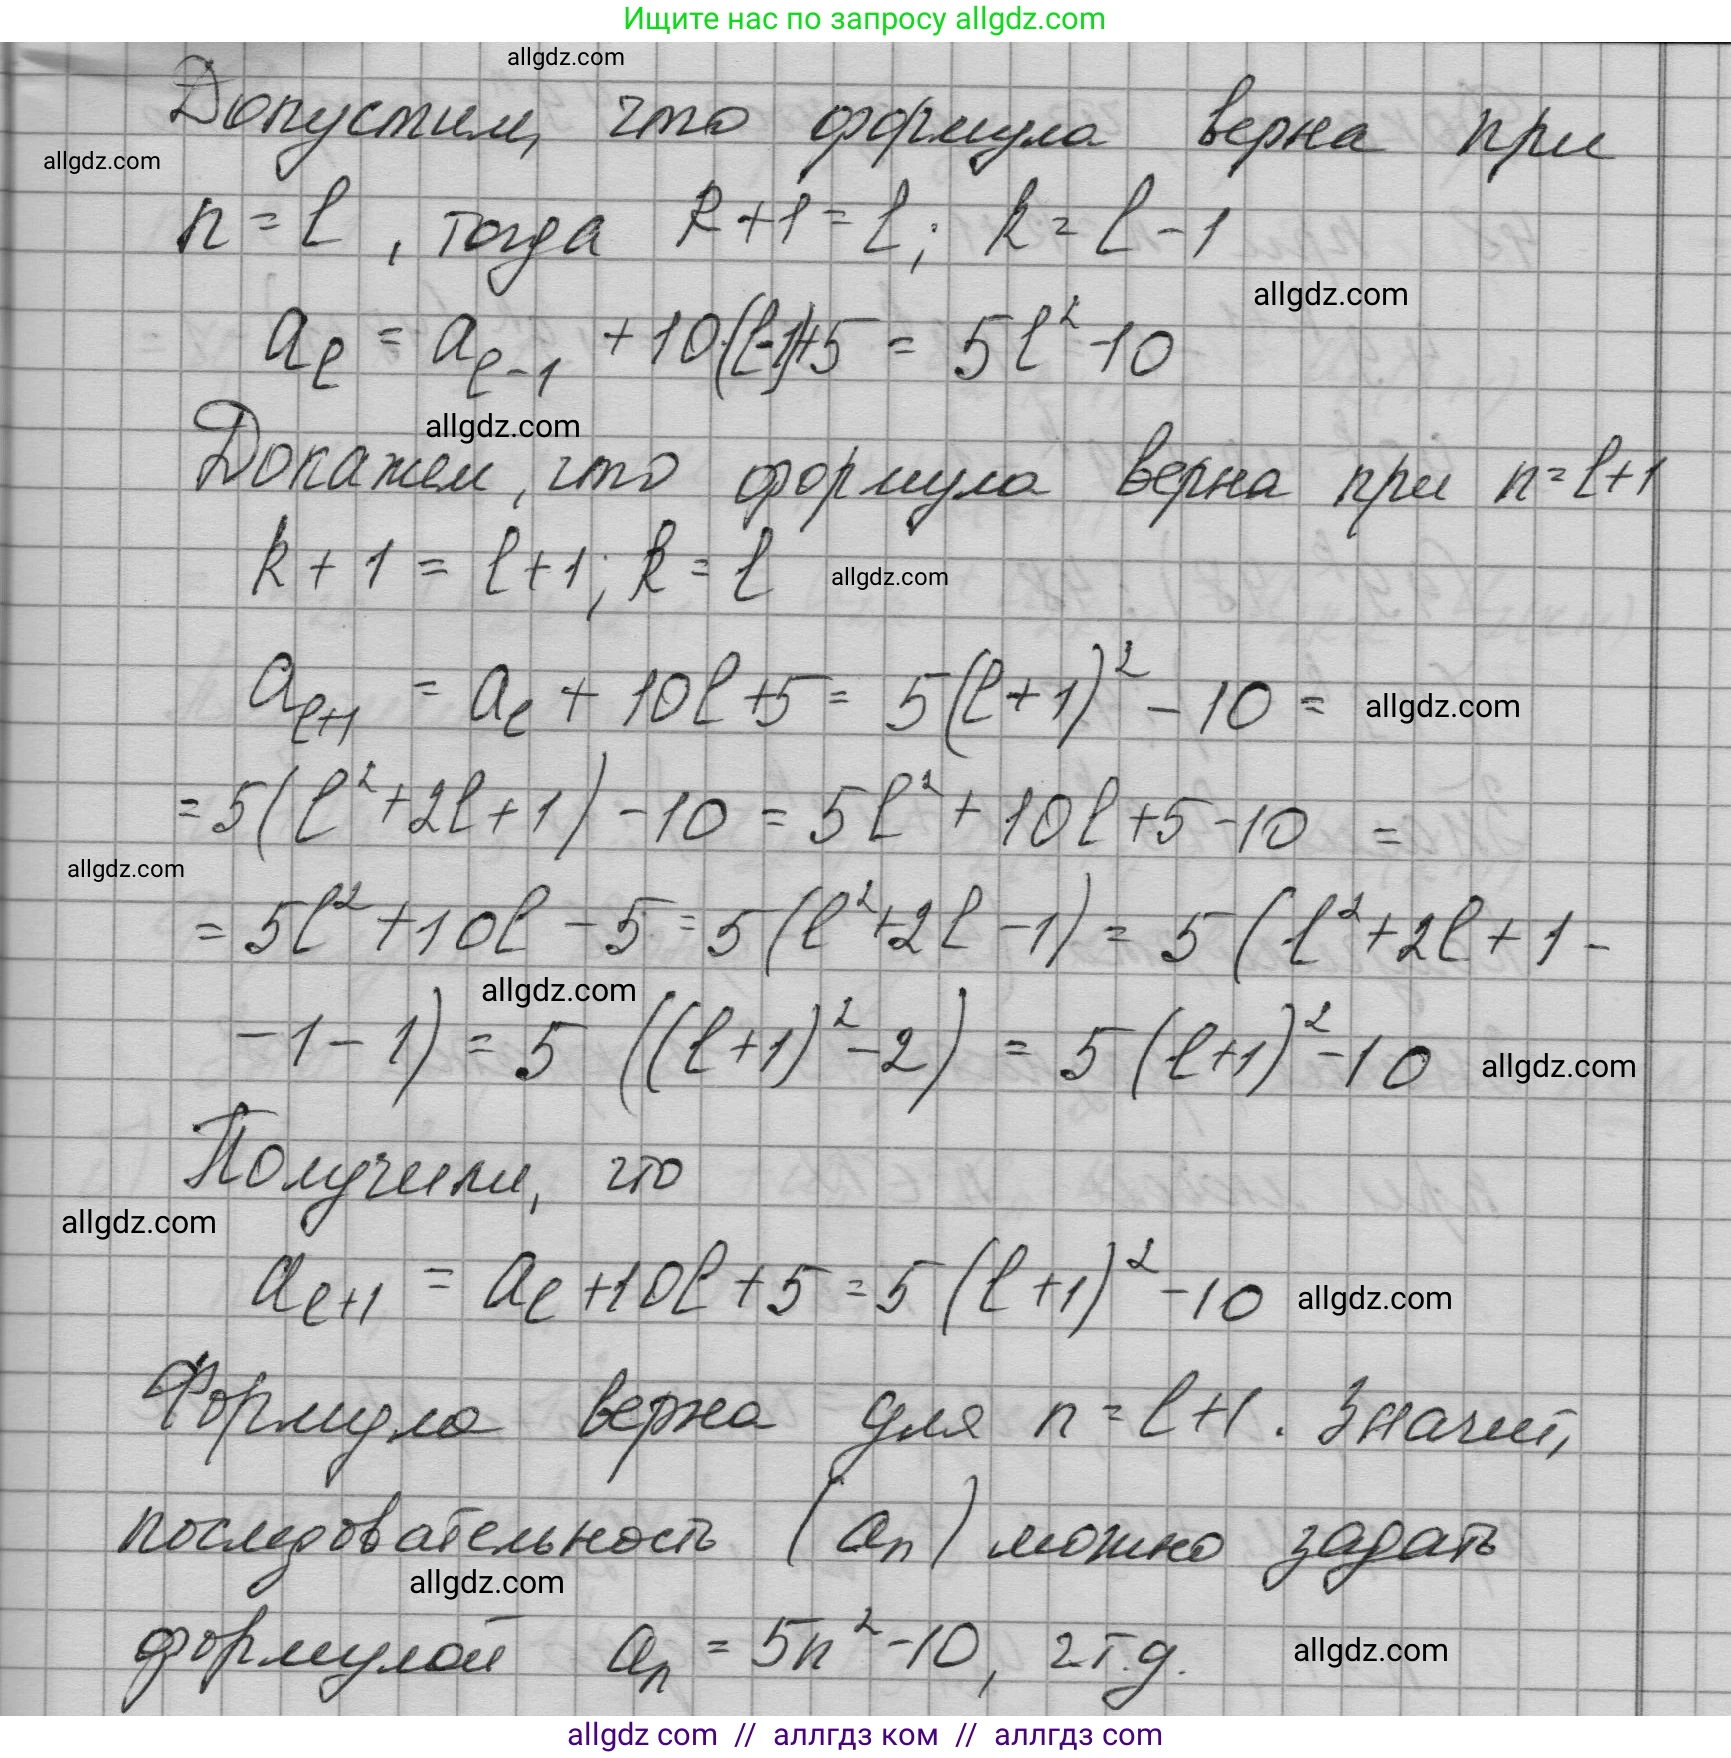 Ищите нас по запросу allgdz.com
allgdz.com
Допустим, что формула верна при
allgdz.com
n = l, тогда k+1 = l; k = l-1
allgdz.com
a_l = a_{l-1} + 10(l-1)+5 = 5l² - 10
allgdz.com
Докажем, что формула верна при n = l+1
k + 1 = l+1; k = l allgdz.com
a_{l+1} = a_l + 10l + 5 = 5(l+1)² - 10 = allgdz.com
= 5(l² + 2l + 1) - 10 = 5l² + 10l + 5 - 10 =
allgdz.com
= 5l² + 10l - 5 = 5(l² + 2l - 1) = 5(l² + 2l + 1 -
allgdz.com
- 1 - 1) = 5((l+1)² - 2) = 5(l+1)² - 10 allgdz.com
Получили, что
allgdz.com
a_{l+1} = a_l + 10l + 5 = 5(l+1)² - 10 allgdz.com
Формула верна для n = l+1. Значит,
последовательность (a_n) можно задать
allgdz.com
формулой a_n = 5n² - 10, чт.д. allgdz.com
allgdz com // аллгдз ком // аллгдз com